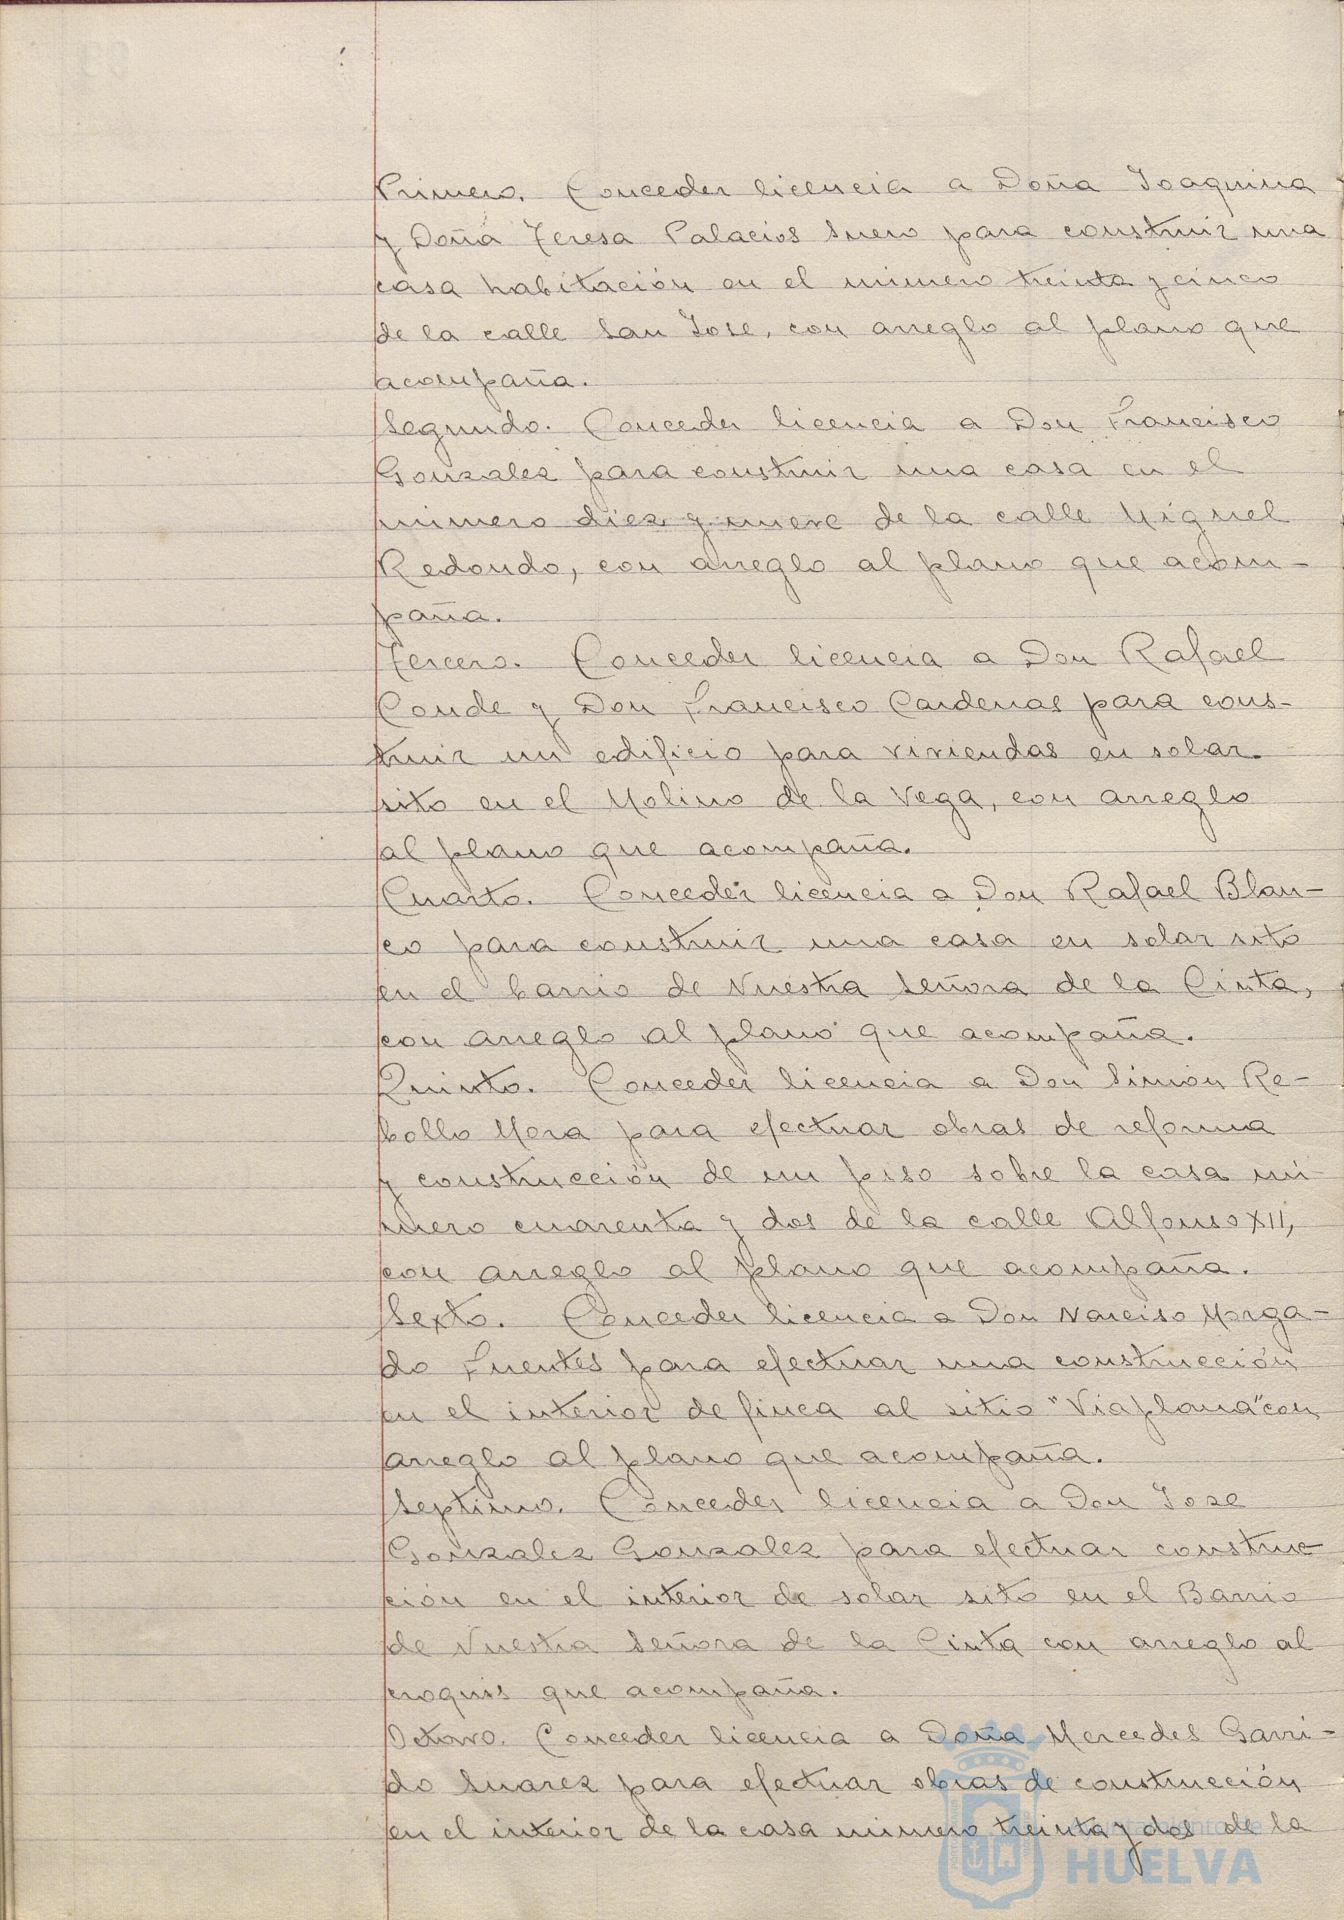 Primero. Conceder licencia a Doña Joaquina
y Doña Teresa Palacios Suero para construir una
casa habitación en el número treinta y cinco
de la calle San Jose, con arreglo al plano que
acompaña.
Segundo. Conceder licencia a Don Francisco
Gonzalez para construir una casa en el
número diez y nueve de la calle Miguel
Redondo, con arreglo al plano que acom-
paña.
Tercero. Conceder licencia a Don Rafael
Conde y Don Francisco Cardenas para cons-
truir un edificio para viviendas en solar
sito en el Molino de la Vega, con arreglo
al plano que acompaña.
Cuarto. Conceder licencia a Don Rafael Blan-
co para construir una casa en solar sito
en el barrio de Nuestra Señora de la Cinta,
con arreglo al plano que acompaña.
Quinto. Conceder licencia a Don Simón Re-
bollo Mora para efectuar obras de reforma
y construcción de un piso sobre la casa nú-
mero cuarenta y dos de la calle Alfonso XII,
con arreglo al plano que acompaña.
Sexto. Conceder licencia a Don Narciso Morga-
do Fuentes para efectuar una construcción
en el interior de finca al sitio "Viaplana" con
arreglo al plano que acompaña.
Septimo. Conceder licencia a Don Jose
Gonzalez Gonzalez para efectuar construc-
ción en el interior de solar sito en el Barrio
de Nuestra Señora de la Cinta con arreglo al
croquis que acompaña.
Octavo. Conceder licencia a Doña Mercedes Garri-
do Suarez para efectuar obras de construcción
en el interior de la casa número treinta y dos de la
Ayuntamiento de
HUELVA